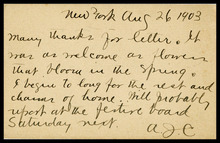 New York Aug 26 1903
Many thanks for letter. It
was as welcome as flowers
that bloom in the Spring.
I begin to long for the rest and
charms of home. Will probably
report at the festive board
Saturday next.
A J C